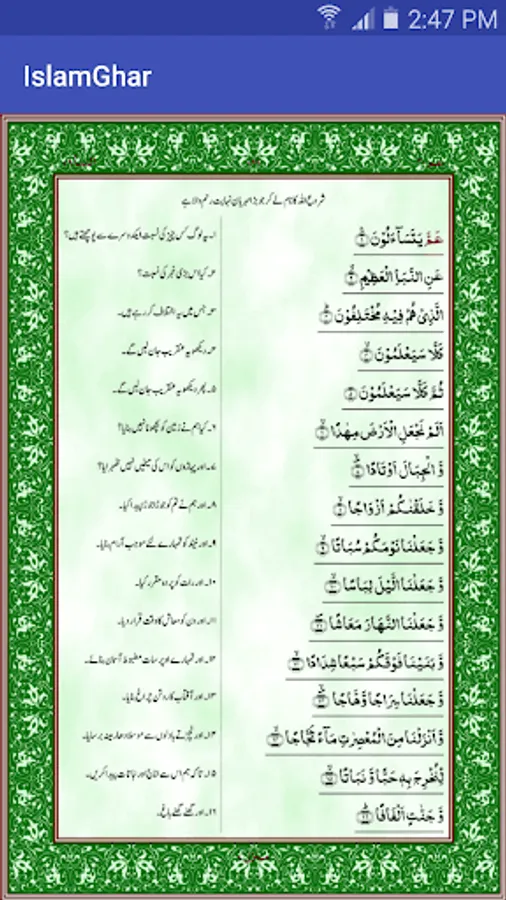 2:47 PM
IslamGhar
شروع اللہ کا نام لے کر جو بڑا مہربان نہایت رحم والا ہے
عَمَّ يَتَسَآءَلُوْنَ ۝۱
۱۔ یہ لوگ کس چیز کی نسبت ایک دوسرے سے پوچھتے ہیں؟
عَنِ النَّبَاِ الْعَظِيْمِ ۝۲
۲۔ کیا اس بڑی خبر کی نسبت؟
الَّذِىْ هُمْ فِيْهِ مُخْتَلِفُوْنَ ۝۳
۳۔ جس میں یہ اختلاف کر رہے ہیں۔
كَلَّا سَيَعْلَمُوْنَ ۝۴
۴۔ دیکھو یہ عنقریب جان لیں گے۔
ثُمَّ كَلَّا سَيَعْلَمُوْنَ ۝۵
۵۔ پھر دیکھو یہ عنقریب جان لیں گے۔
اَلَمْ نَجْعَلِ الْاَرْضَ مِهٰدًا ۝۶
۶۔ کیا ہم نے زمین کو بچھونا نہیں بنایا؟
وَّ الْجِبَالَ اَوْتَادًا ۝۷
۷۔ اور پہاڑوں کو اس کی میخیں نہیں ٹھہرایا؟
وَّ خَلَقْنٰكُمْ اَزْوَاجًا ۝۸
۸۔ اور ہم نے تم کو جوڑا جوڑا پیدا کیا۔
وَّ جَعَلْنَا نَوْمَكُمْ سُبَاتًا ۝۹
۹۔ اور نیند کو تمہارے لئے موجب آرام بنایا۔
وَّ جَعَلْنَا الَّيْلَ لِبَاسًا ۝۱۰
۱۰۔ اور رات کو پردہ مقرر کیا۔
وَّ جَعَلْنَا النَّهَارَ مَعَاشًا ۝۱۱
۱۱۔ اور دن کو معاش کا وقت قرار دیا۔
وَّ بَنَيْنَا فَوْقَكُمْ سَبْعًا شِدَادًا ۝۱۲
۱۲۔ اور تمہارے اوپر سات مضبوط آسمان بنائے۔
وَّ جَعَلْنَا سِرَاجًا وَّهَّاجًا ۝۱۳
۱۳۔ اور آفتاب کا روشن چراغ بنایا۔
وَّ اَنْزَلْنَا مِنَ الْمُعْصِرٰتِ مَآءً ثَجَّاجًا ۝۱۴
۱۴۔ اور نچڑتے بادلوں سے موسلا دھار مینہ برسایا۔
لِّنُخْرِجَ بِهٖ حَبًّا وَّ نَبَاتًا ۝۱۵
۱۵۔ تاکہ ہم اس سے اناج اور نباتات پیدا کریں۔
وَّ جَنّٰتٍ اَلْفَافًا ۝۱۶
۱۶۔ اور گھنے گھنے باغ۔